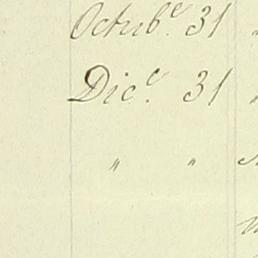 Octubᵉ. 31 "
Dicᵉ. 31 "
" "